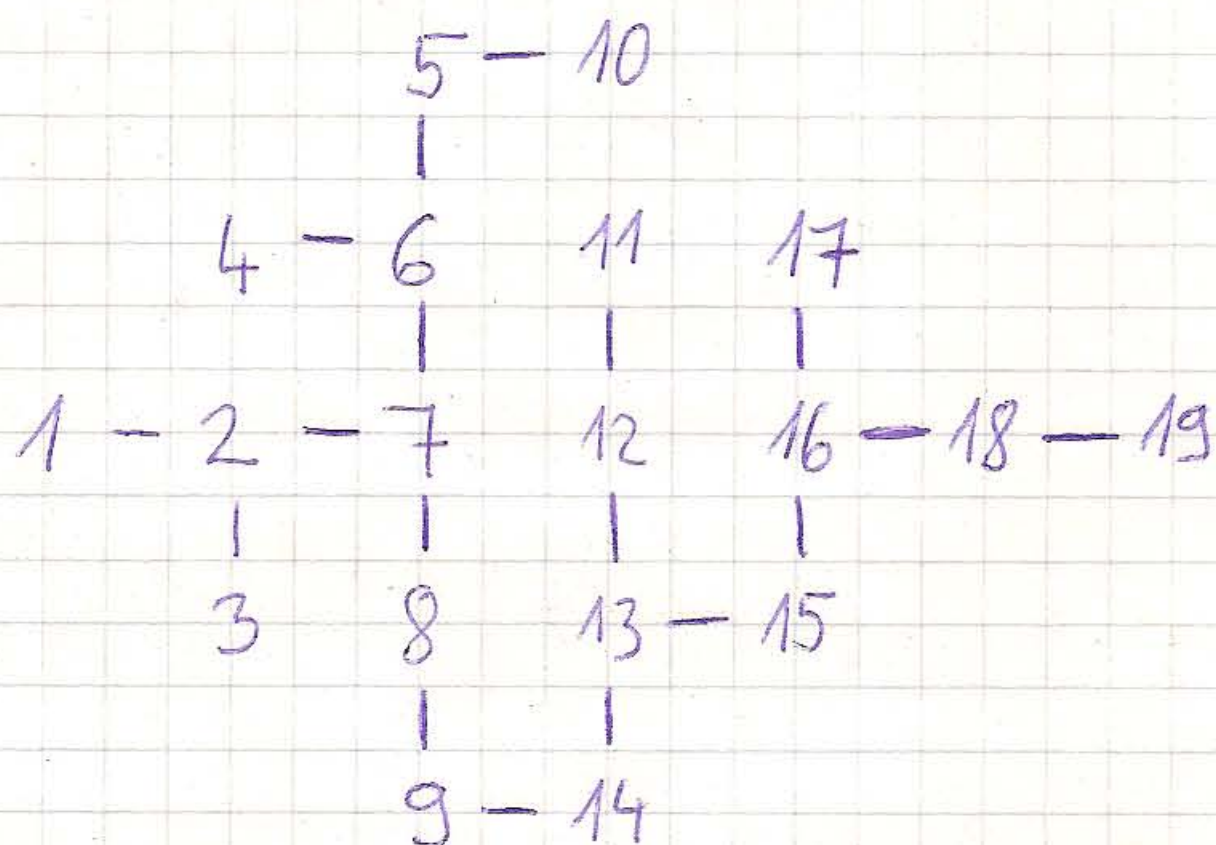 5 - 10
|
4 - 6 11 17
| | |
1 - 2 - 7 12 16 - 18 - 19
| | | |
3 8 13 - 15
| |
9 - 14